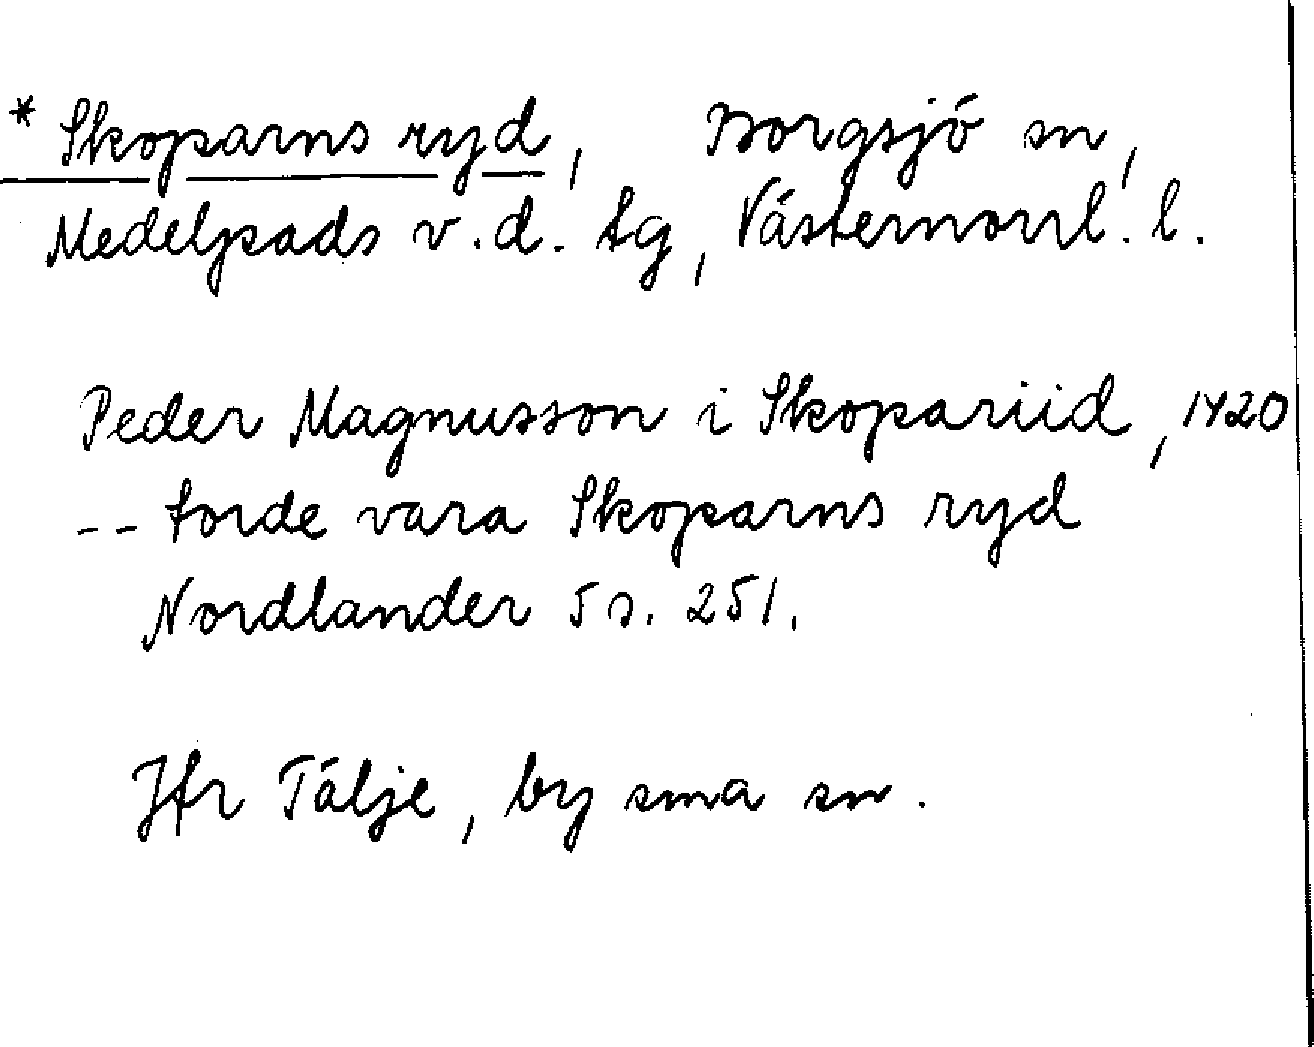 * Skoparns ryd, Borgsjö sn,
Medelpads v.d. tg, Västernorrl. l.
Peder Magnusson i Skopariid, 1420
-- torde vara Skoparns ryd
Nordlander 5 s. 251.
Jfr Tälje, by sma sn.